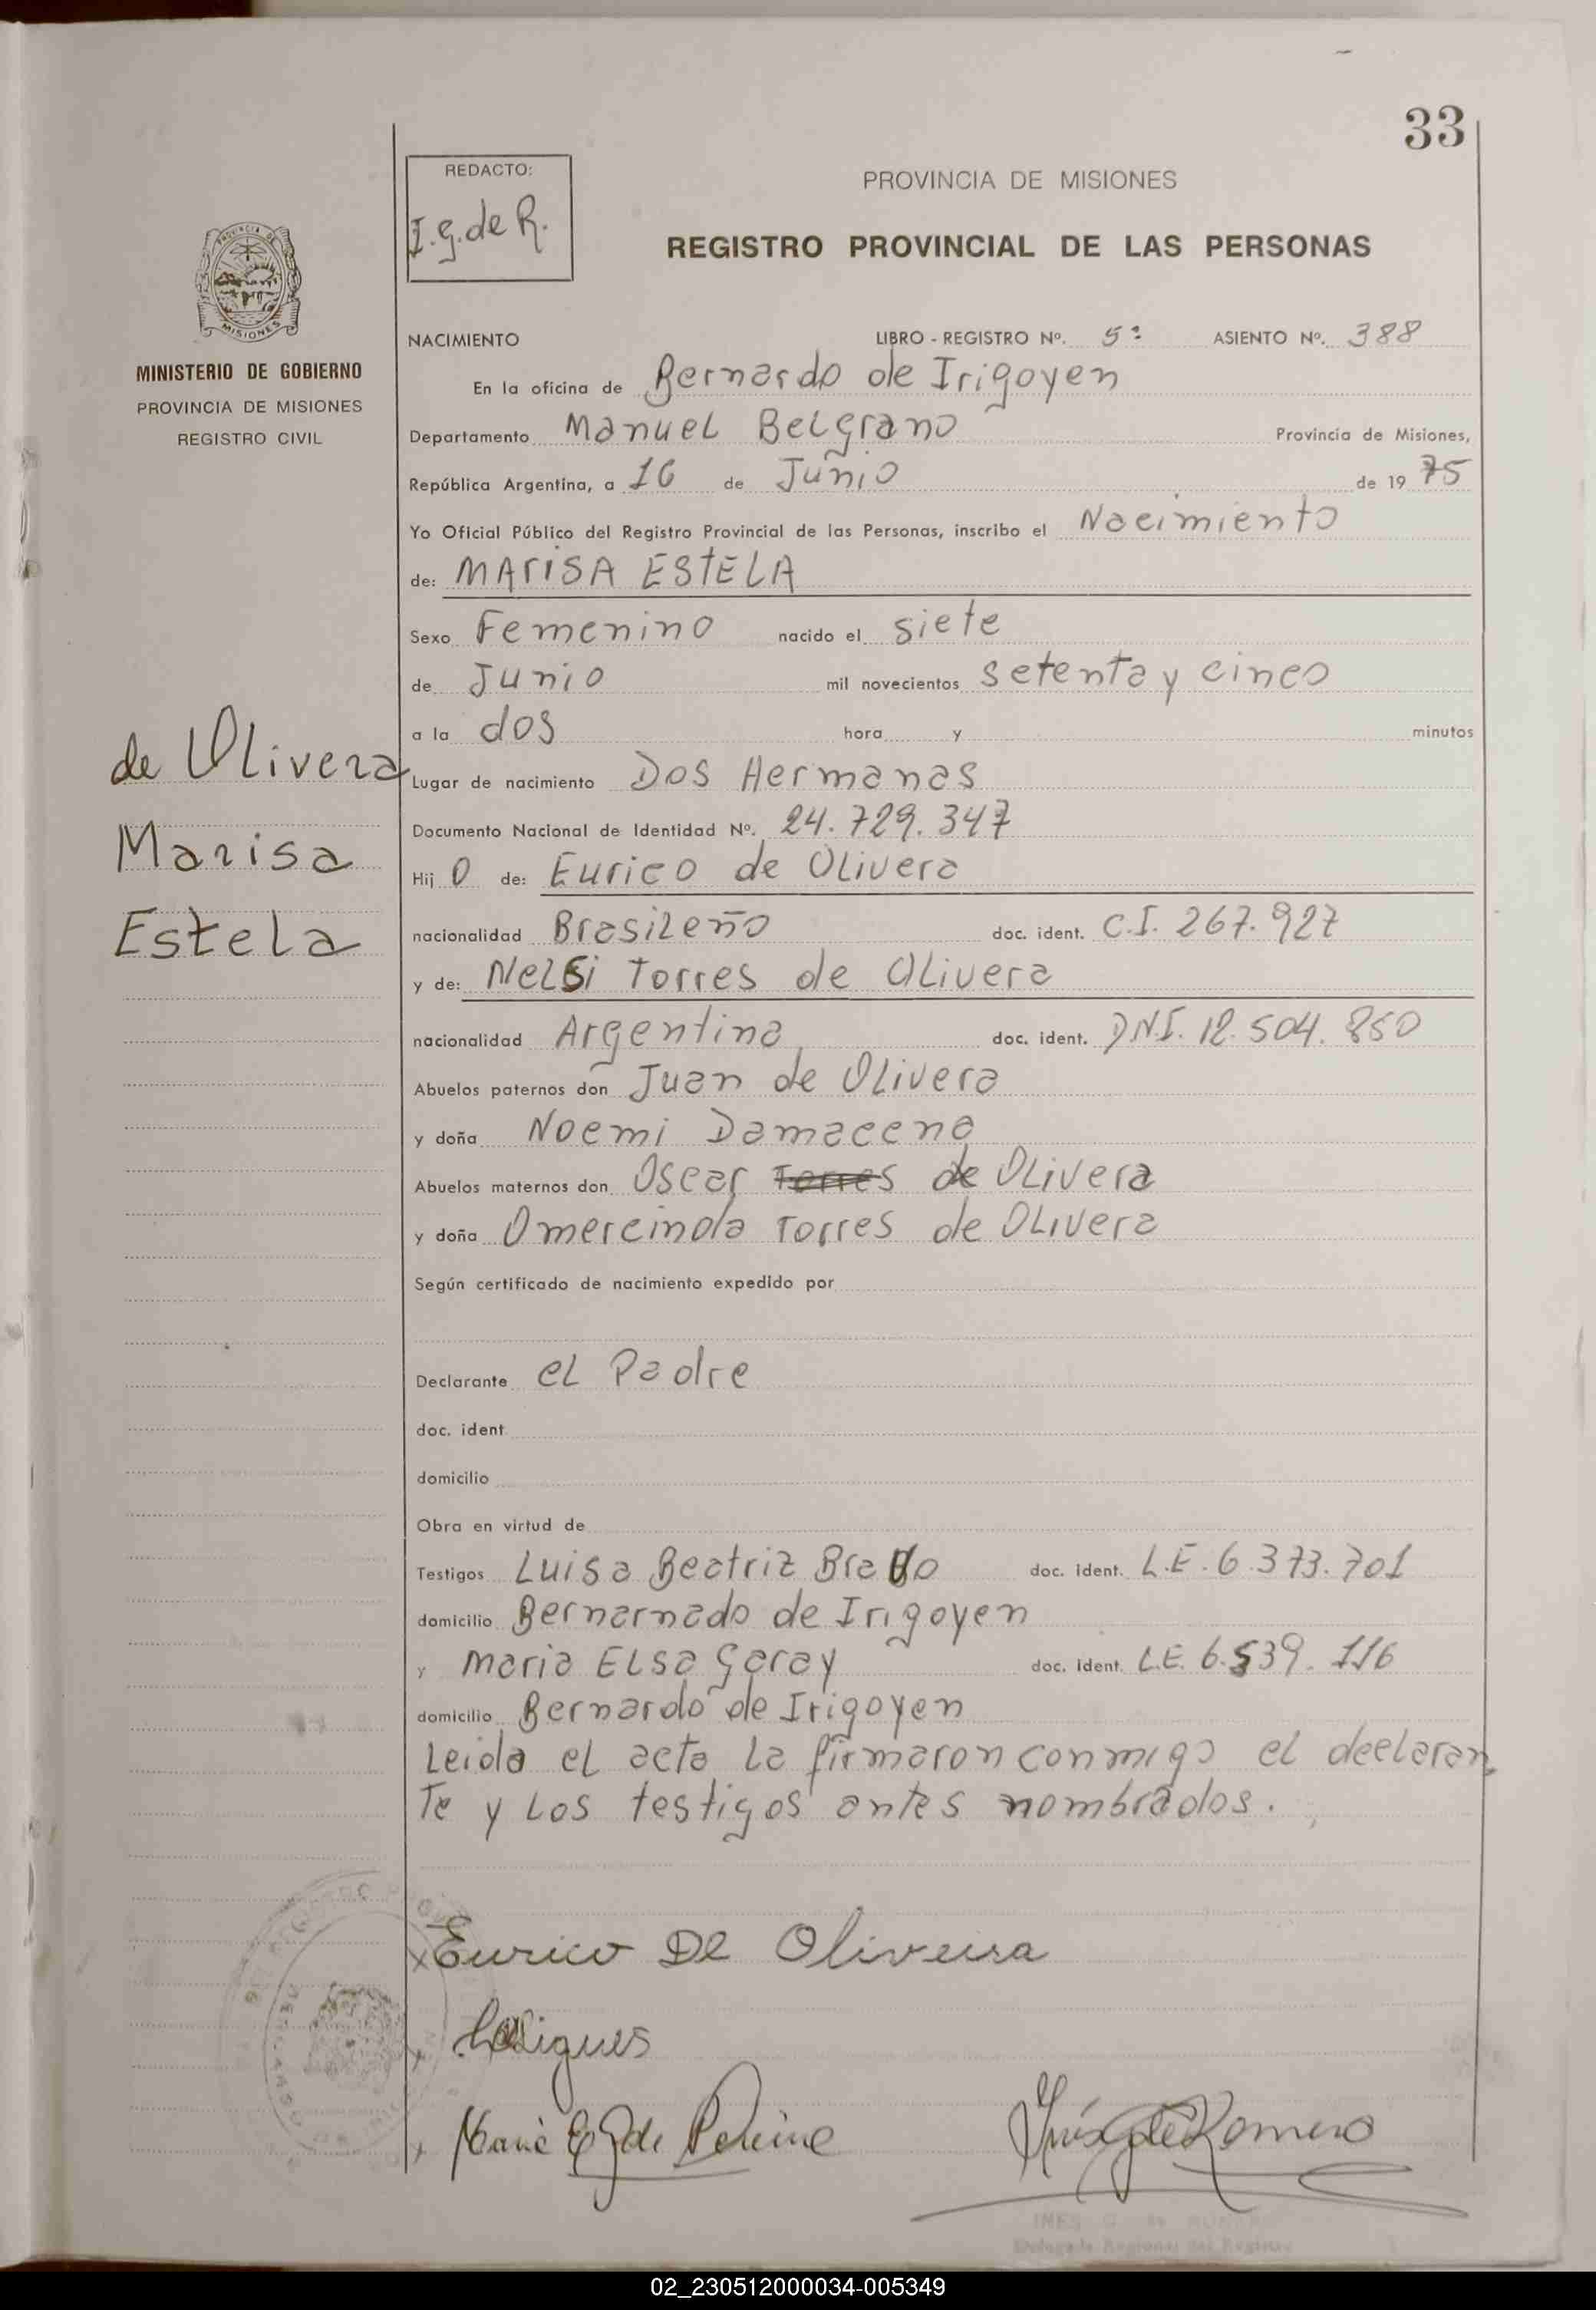 33
REDACTO:
I.g.de R.
PROVINCIA DE MISIONES
REGISTRO PROVINCIAL DE LAS PERSONAS
PROVINCIA DE
MISIONES
MINISTERIO DE GOBIERNO
PROVINCIA DE MISIONES
REGISTRO CIVIL
NACIMIENTO LIBRO - REGISTRO Nº. 5º ASIENTO Nº. 388
En la oficina de Bernardo de Irigoyen
Departamento Manuel Belgrano Provincia de Misiones,
República Argentina, a 16 de Junio de 19 75
Yo Oficial Público del Registro Provincial de las Personas, inscribo el Nacimiento
de: MARISA ESTELA
Sexo Femenino nacido el siete
de Junio mil novecientos setenta y cinco
a la dos hora y minutos
de Olivera
Marisa
Estela
Lugar de nacimiento Dos Hermanas
Documento Nacional de Identidad Nº. 24.729.347
Hij a de: Eurico de Olivera
nacionalidad Brasileño doc. ident. C.I. 267.927
y de: Nelsi Torres de Olivera
nacionalidad Argentina doc. ident. D.N.I. 12.504.850
Abuelos paternos don Juan de Olivera
y doña Noemi Damacena
Abuelos maternos don Oscar Torres de Olivera
y doña Omercinda Torres de Olivera
Según certificado de nacimiento expedido por
Declarante el Padre
doc. ident
domicilio
Obra en virtud de
Testigos Luisa Beatriz doc. ident. L.E. 6.373.701
domicilio Bernarnado de Irigoyen
y Maria Elsa Garay doc. ident. L.E. 6.539.116
domicilio Bernardo de Irigoyen
Leida el acta la firmaron conmigo el declaran
te y los testigos antes nombrados.
Eurico De Oliveira
Maria E G de Pereira
Inés G de Romero
INES G. de ROMERO
Delegada Regional del Registro
02_230512000034-005349